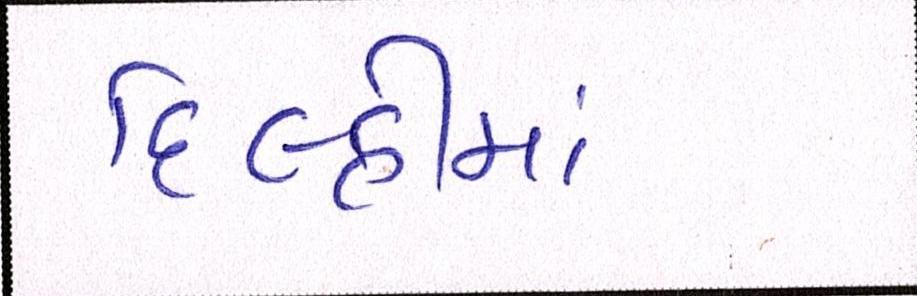 દિલ્હીમાં